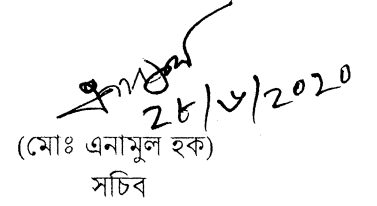 ২৮/৬/২০২০
(মোঃ এনামুল হক)
সচিব